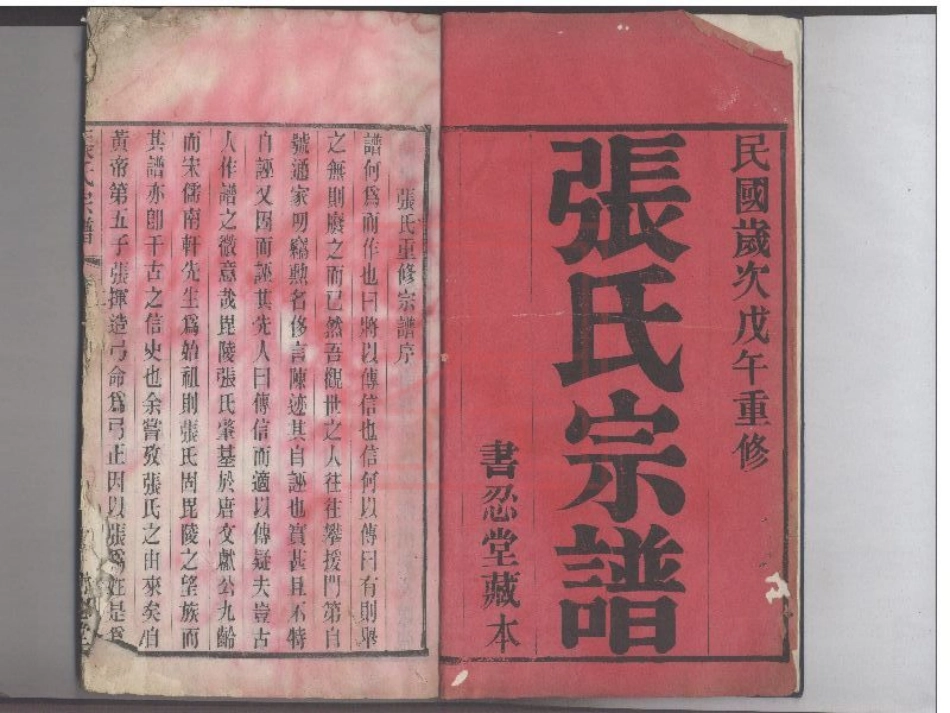 民國歲次戊午重修
張氏宗譜
書忍堂藏本
張氏重修宗譜序
譜何爲而作也曰將以傳信也信何以傳曰有則舉
之無則廢之而已然吾觀世之人往往攀援門第自
號通家明竊勲名侈言陳迹其自誣也實甚且不特
自誣又因而誣其先人曰傳信而適以傳疑夫豈古
人作譜之微意哉毘陵張氏肇基於唐文獻公九齡
而宋儒南軒先生爲始祖則張氏固毘陵之望族而
其譜亦卽千古之信史也余嘗攷張氏之由來矣自
黃帝第五子張揮造弓命爲弓正因以張爲姓是爲
氏宗譜